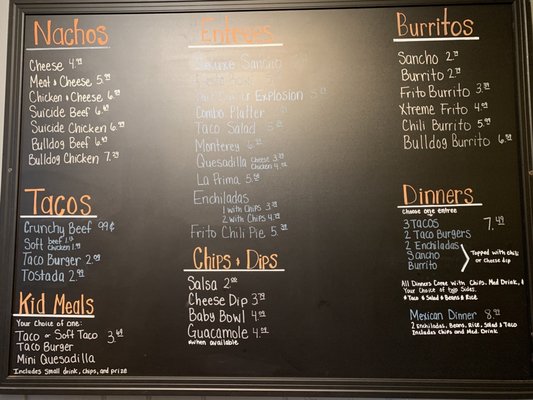 Nachos
Cheese 4.
Meat & Cheese 5.
Chicken & Cheese 6.
Suicide Beef 6.
Suicide Chicken 6.
Bulldog Beef 6.
Bulldog Chicken 7.
Tacos
Crunchy Beef 99¢
Soft beef
chicken
Taco Burger 2.
Tostada 2.
Kid Meals
Your choice of one:
Taco or Soft Taco 3.
Taco Burger
Mini Quesadilla
Includes small drink, chips, and prize
Entrees
Deluxe Sancho
Explosion
Combo Platter
Taco Salad
Monterey 6.
Quesadilla Cheese 3.
Chicken 4.
La Prima 5.
Enchiladas
1 with Chips 3.
2 with Chips 4.
Frito Chili Pie 5.
Chips & Dips
Salsa 2.
Cheese Dip 3.
Baby Bowl 4.
Guacamole 4.
*when available
Burritos
Sancho 2.
Burrito 2.
Frito Burrito 3.
Xtreme Frito 4.
Chili Burrito 5.
Bulldog Burrito 6.
Dinners
Choose one entree
3 Tacos 7.
2 Taco Burgers
2 Enchiladas
Sancho
Burrito
Topped with chili
or cheese dip
All Dinners Come with Chips, Med. Drink, &
Your Choice of two Sides.
*Taco *Salad *Beans *Rice
Mexican Dinner 8.
2 Enchiladas, Beans, Rice, Salad & Taco
Includes Chips and Med. Drink